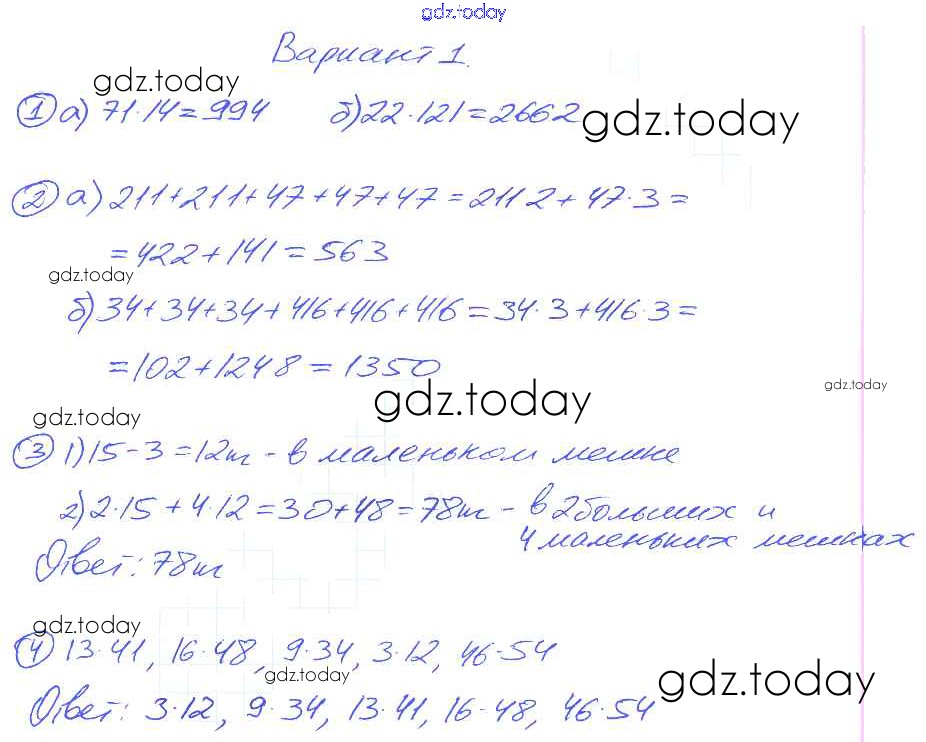 gdz.today
Вариант 1.
gdz.today
① а) 71·14=994 б) 22·121=2662
gdz.today
② а) 211+211+47+47+47=211·2+47·3=
=422+141=563
gdz.today
б) 34+34+34+416+416+416=34·3+416·3=
=102+1248=1350
gdz.today
gdz.today
gdz.today
③ 1) 15-3=12кг - в маленьком мешке
2) 2·15+4·12=30+48=78кг - в 2 больших и
4 маленьких мешках
Ответ: 78кг
gdz.today
④ 13·41, 16·48, 9·34, 3·12, 46·54
gdz.today
gdz.today
Ответ: 3·12, 9·34, 13·41, 16·48, 46·54